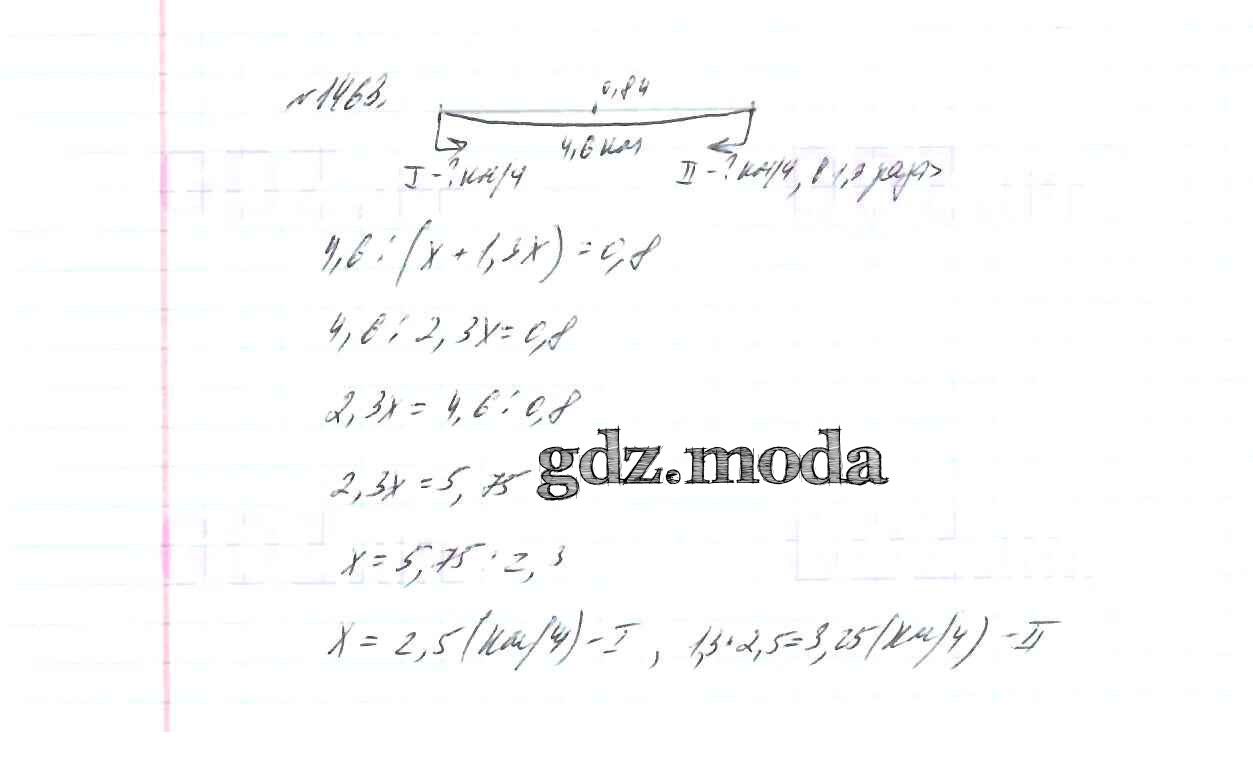 №1463.
0,8ч
4,6 км
I - ? км/ч
II - ? км/ч, в 1,3 раза >
4,6 : (x + 1,3x) = 0,8
4,6 : 2,3x = 0,8
2,3x = 4,6 : 0,8
gdz.moda
2,3x = 5,75
x = 5,75 : 2,3
x = 2,5 (км/ч) - I , 1,3 · 2,5 = 3,25 (км/ч) - II